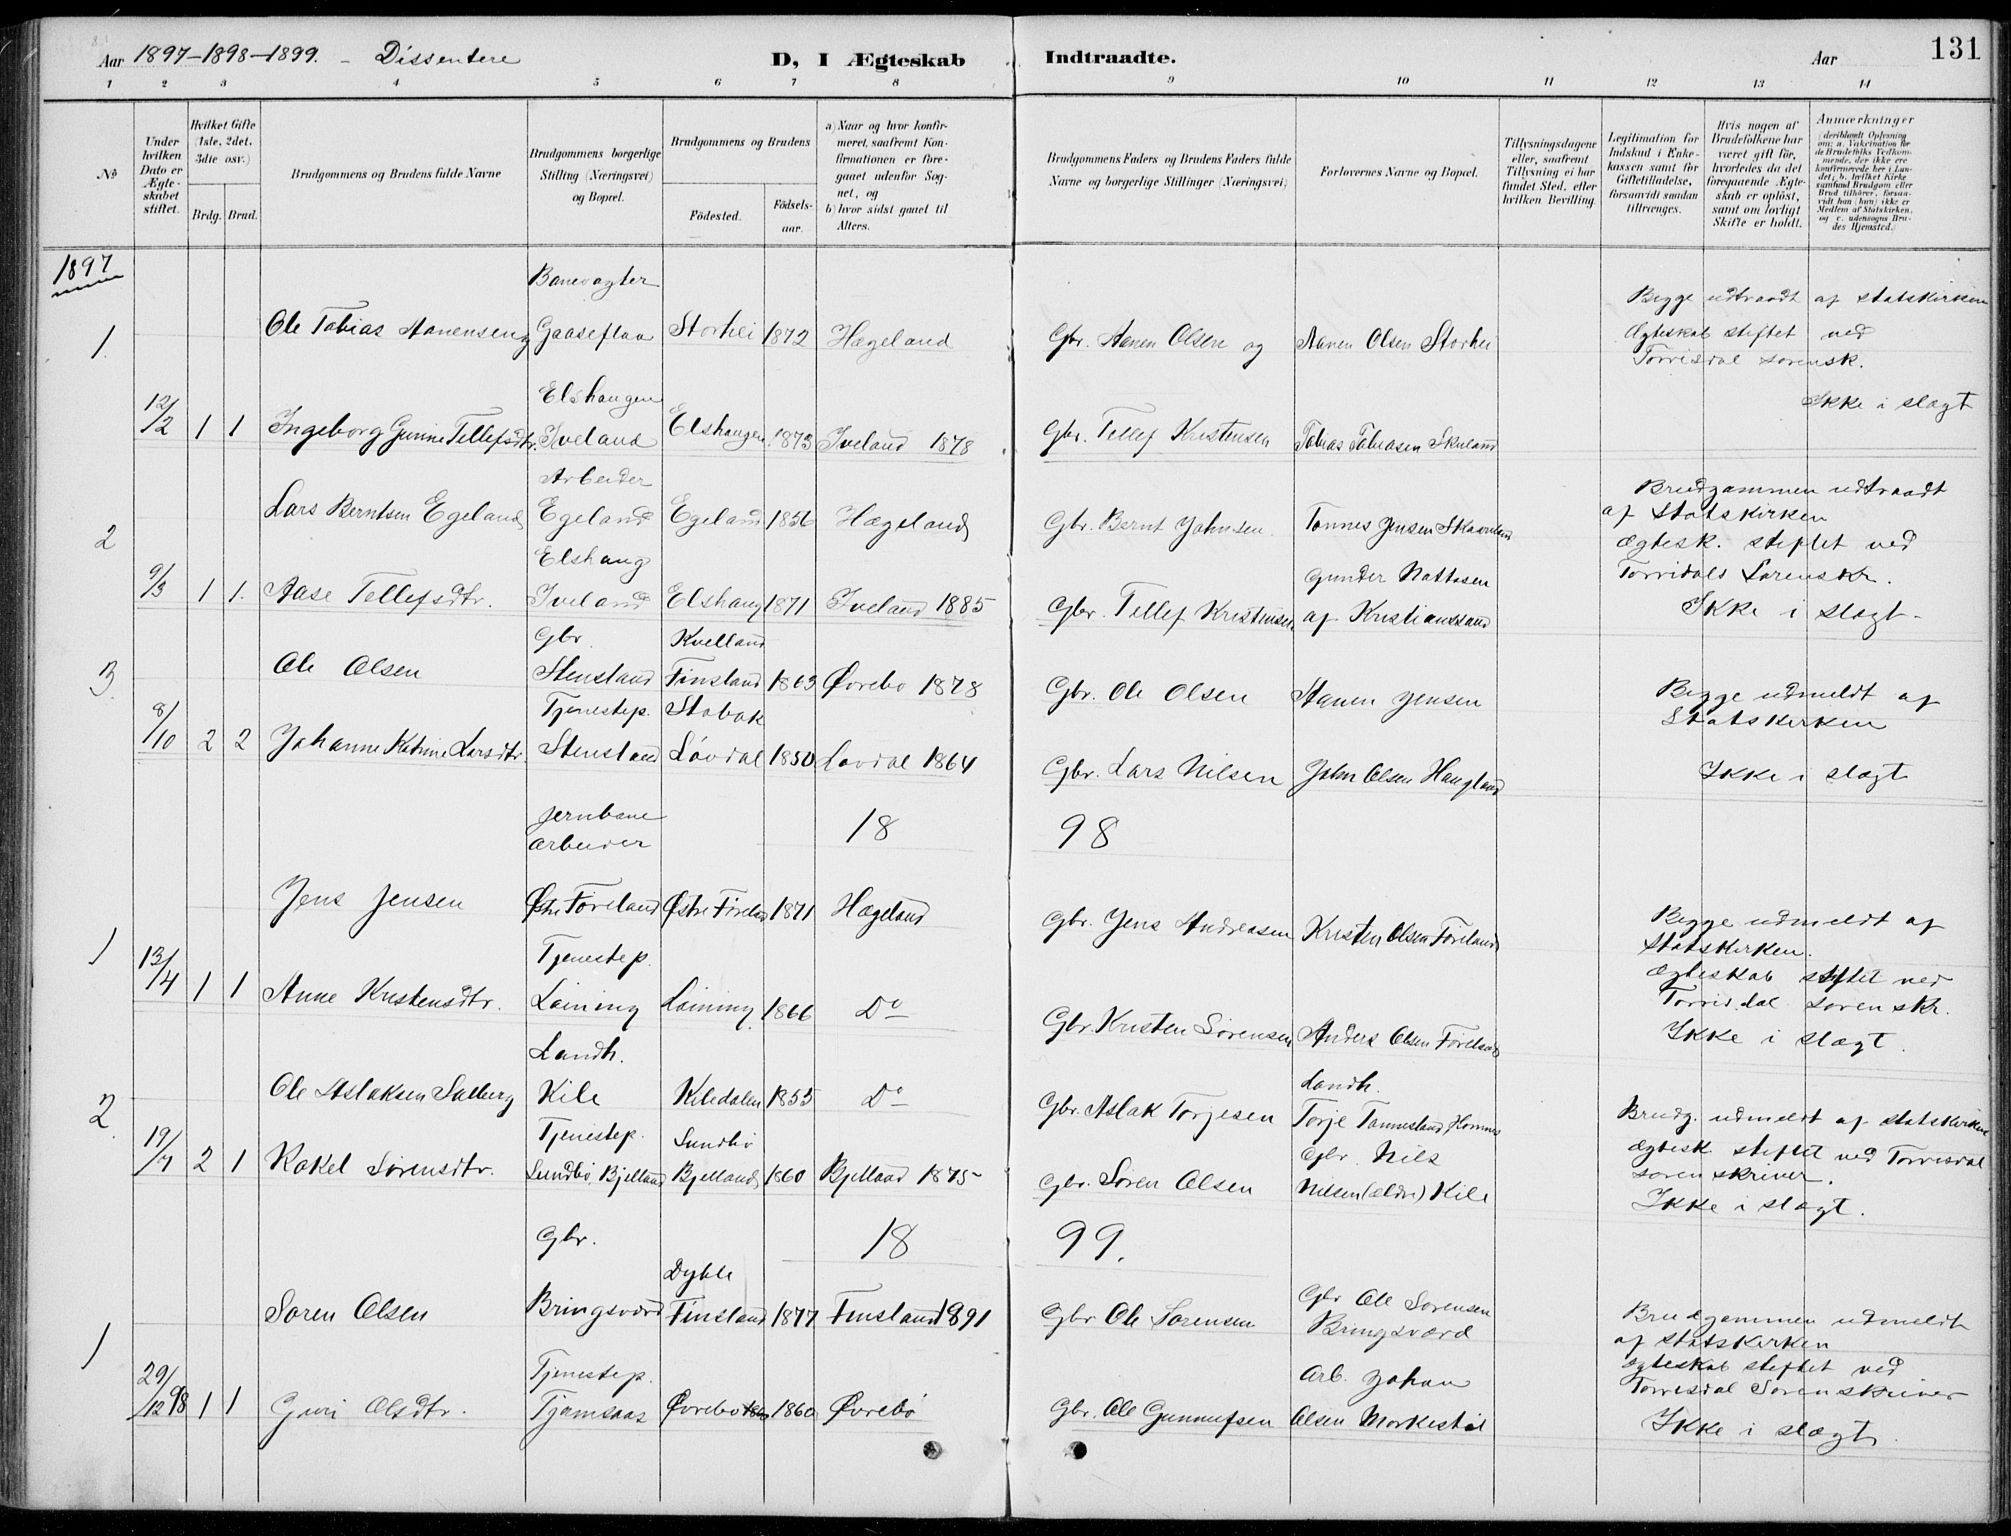 Aar 1897-1898-1899. - Dissentere D, I Ægteskab Indtraadte. Aar 131
1 2 3 4 5 6 7 8 9 10 11 12 13 14
No
Under hvilken Dato er Ægteskabet stiftet.
Hvilket Gifte (1ste, 2det, 3die osv.)
Brdg. Brud.
Brudgommens og Brudens fulde Navne
Brudgommens borgerlige Stilling (Næringsvei) og Bopæl.
Brudgommens og Brudens
Födested. Födselsaar.
a) Naar og hvor konfirmeret, saafremt Konfirmationen er foregaaet udenfor Sognet, og
b) hvor sidst gaaet til Alters.
Brudgommens Faders og Brudens Faders fulde Navne og borgerlige Stillinger (Næringsvei)
Forlovernes Navne og Bopæl.
Tillysningsdagene eller, saafremt Tillysning ei har fundet Sted, efter hvilken Bevilling.
Legitimation for Indskud i Enkekassen samt for Giftetilladelse, forsaavidt saadan tiltrænges.
Hvis nogen af Brudefolkene har været gift før, hvorledes da det foregaaende Ægteskab er oplöst, samt om lovligt Skifte er holdt.
Anmærkninger (deriblandt Oplysning om: a. Vakcination for de Brudefolks Vedkommende, der ikke ere konfirmerede her i Landet; b. hvilket Kirkesamfund Brudgom eller Brud tilhörer, forsaavidt han (hun) ikke er Medlem af Statskirken, og c. udensogns Brudes Hjemsted.)
1897
Banevagter
1. Ole Tobias Aanensen Gaaseflaa Storhei 1872 Hægeland Gbr. Aanen Olsen og Aanen Olsen Storhei
Begge udtraadt af statskirken
Ægteskab stiftet ved
Torrisdal sorensk.
Ikke i slægt
Elshaugen
12/2 1 1 Ingeborg Gurine Tellefsdtr. Iveland Elshaugen 1873 Iveland 1878 Gbr. Tellef Kristensen Tobias Tobiasen Skuland
Arbeider
2 Lars Berntsen Egeland Egeland Egeland 1856 Hægeland Gbr. Bernt Johnsen Tønnes Jensen
Brudgommen udtraadt
af Statskirken
ægtesk. stiftet ved
Torridals Sorenskr.
Ikke i slægt.
Elshaug
9/3 1 1. Aase Tellefsdtr. Iveland Elshaug 1871 Iveland 1885 Gbr. Tellef Kristensen
Gunder Nattosen
af Kristianssand
Gbr Kvelland
3 Ole Olsen Stensland Finsland 1863 Øvrebo 1878 Gbr. Ole Olsen Aanen Jensen
Begge udmeldt af
Statskirken
Tjenestep. Stobak
8/10 2 2 Johanne Katrine Larsdtr. Stensland Løvdal 1850 Lovdal 1864 Gbr. Lars Nilsen John Olsen Haugland
Ikke i slægt
18 98
Jernbane
arbeider
1 Jens Jensen Østre Føreland Østre Føreland 1871 Hægeland Gbr. Jens Andreasen Kristen Olsen Føreland
Begge udmeldt af
Statskirken.
Ægteskab stiftet ved
Torrisdal sorenskr.
Ikke i slægt.
Tjenestep.
13/4 1 1 Anne Kristensdtr. Laining Laining 1866 Do Gbr. Kristen Sørensen Anders Olsen Føreland
Landh.
2 Ole Aslaksen Salberg Kile Kiledalen 1855 Do Gbr. Aslak Torjesen
Landh.
Torje Tønnesland, Homnes
Brudg. udmeldt af statskirken
ægtesk stiftet ved Torrisdal
sorenskriver.
Ikke i slagt.
Tjenestep. Sundbø
19/7 2 1 Rakel Sørensdtr. Sundbø, Bjelland Bjelland 1860 Bjelland 1875 Gbr. Søren Olsen
Gbr. Nils
Nilsen (ældre) Kile
18 99.
Gbr. Dyble
1 Søren Olsen Bringsværd Finsland 1877 Finsland 1891 Gbr Ole Sørensen
Gbr Ole Sørensen
Bringsværd
Brudgommen udmeldt
af statskirken
ægteskab stiftet ved
Torrisdal Sorenskriver
Ikke i slægt.
Tjenestep.
29/12 98 1 1 Guri Olsdtr. Tjomsaas Øvrebo 1860 Øvrebø Gbr. Ole Gunnufsen
Arb. Johan
Olsen Morkestøl